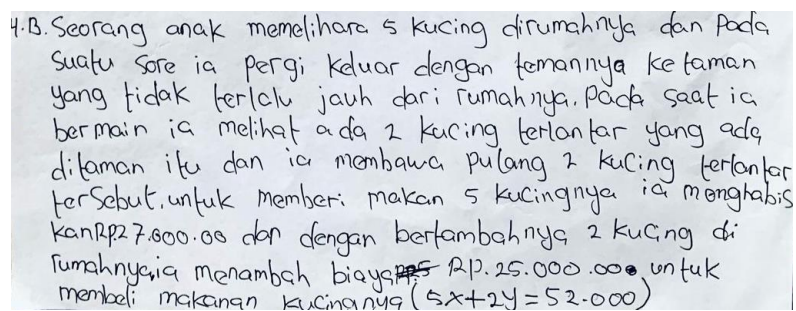 4.B. Seorang anak memelihara 5 kucing dirumahnya dan Pada
Suatu Sore ia pergi keluar dengan temannya ke taman
yang tidak terlalu jauh dari rumahnya. Pada saat ia
bermain ia melihat ada 2 kucing terlantar yang ada
ditaman itu dan ia membawa pulang 2 kucing terlantar
terSebut. untuk memberi makan 5 kucingnya ia menghabis
kan Rp.27.000.00 dan dengan bertambahnya 2 kucing di
rumahnya, ia menambah biaya Rp. 25.000.00 untuk
membeli makanan kucingnya (5x+2y=52.000)